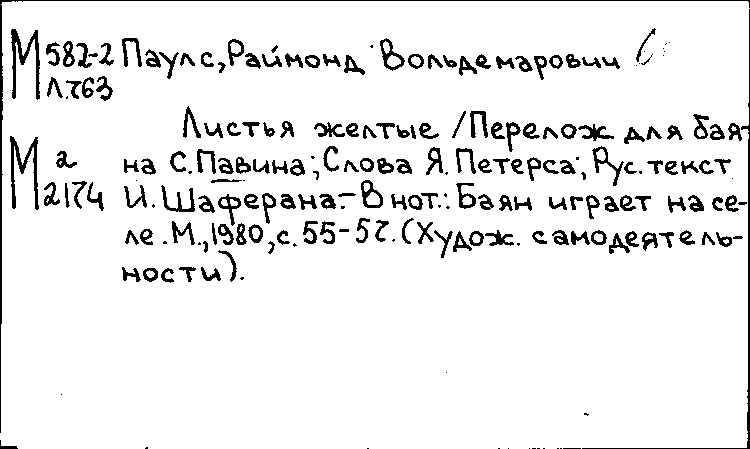 М 582-2 Паулс, Раймонд Вольдемарович
Л.763
Листья желтые / Перелож. для бая-
М а на С. Павина; Слова Я. Петерса; Рус. текст
2174 И. Шаферана. – В нот.: Баян играет на се-
ле. М., 1980, с. 55-57. (Худож. самодеятель-
ности).